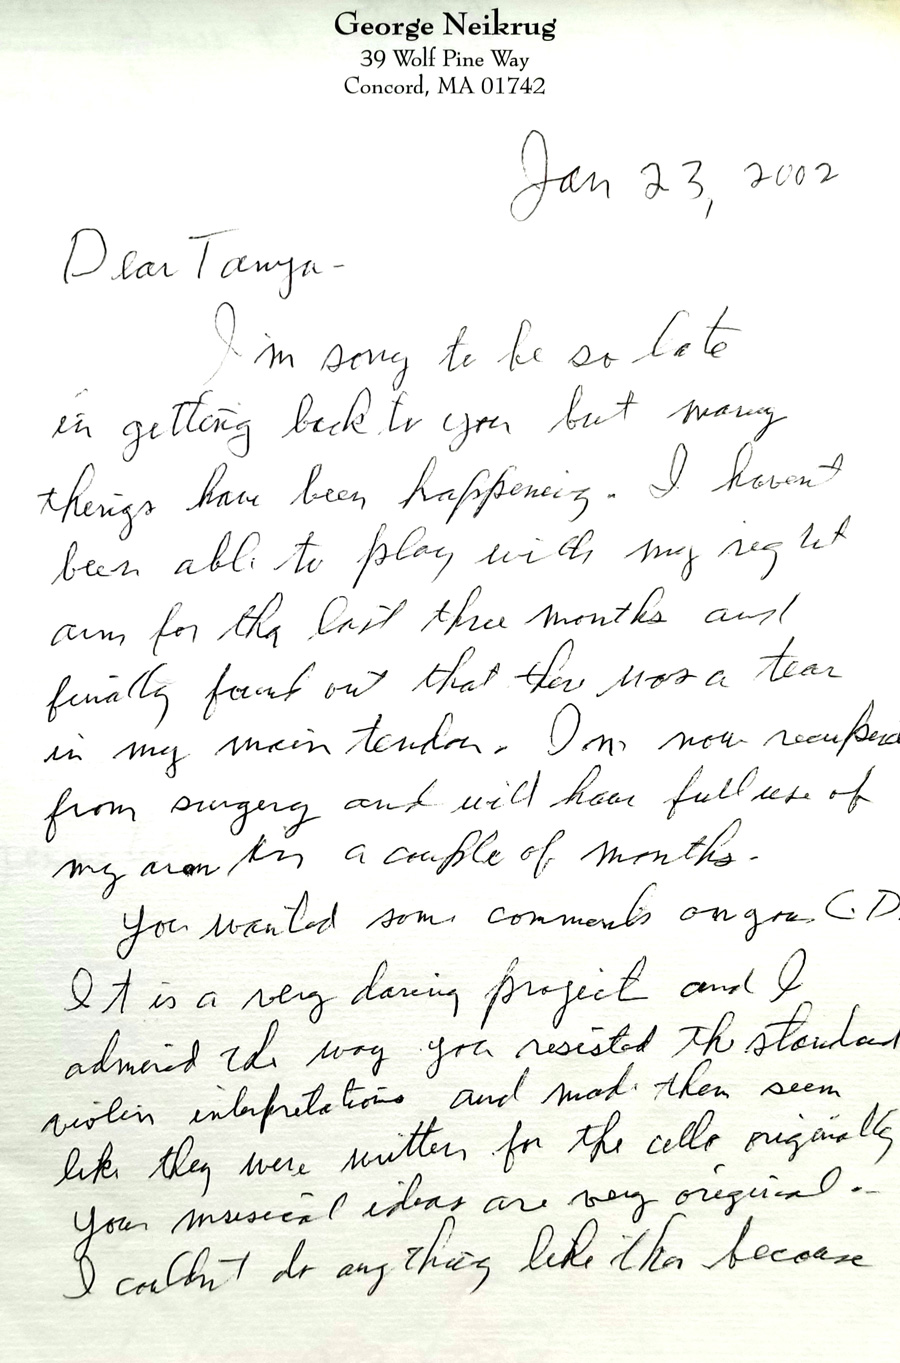 George Neikrug
39 Wolf Pine Way
Concord, MA 01742
Jan 23, 2002
Dear Tanya-
I'm sorry to be so late
in getting back to you but many
things have been happening. I haven't
been able to play with my right
arm for the last three months and
finally found out that there was a tear
in my main tendon. I'm now
from surgery and will have full use of
my arm in a couple of months.
You wanted some comments on your C.D.
It is a very daring project and I
admired the way you resisted the standard
violin interpretations and made them seem
like they were written for the cello originally
Your musical ideas are very original.-
I couldn't do anything like that because